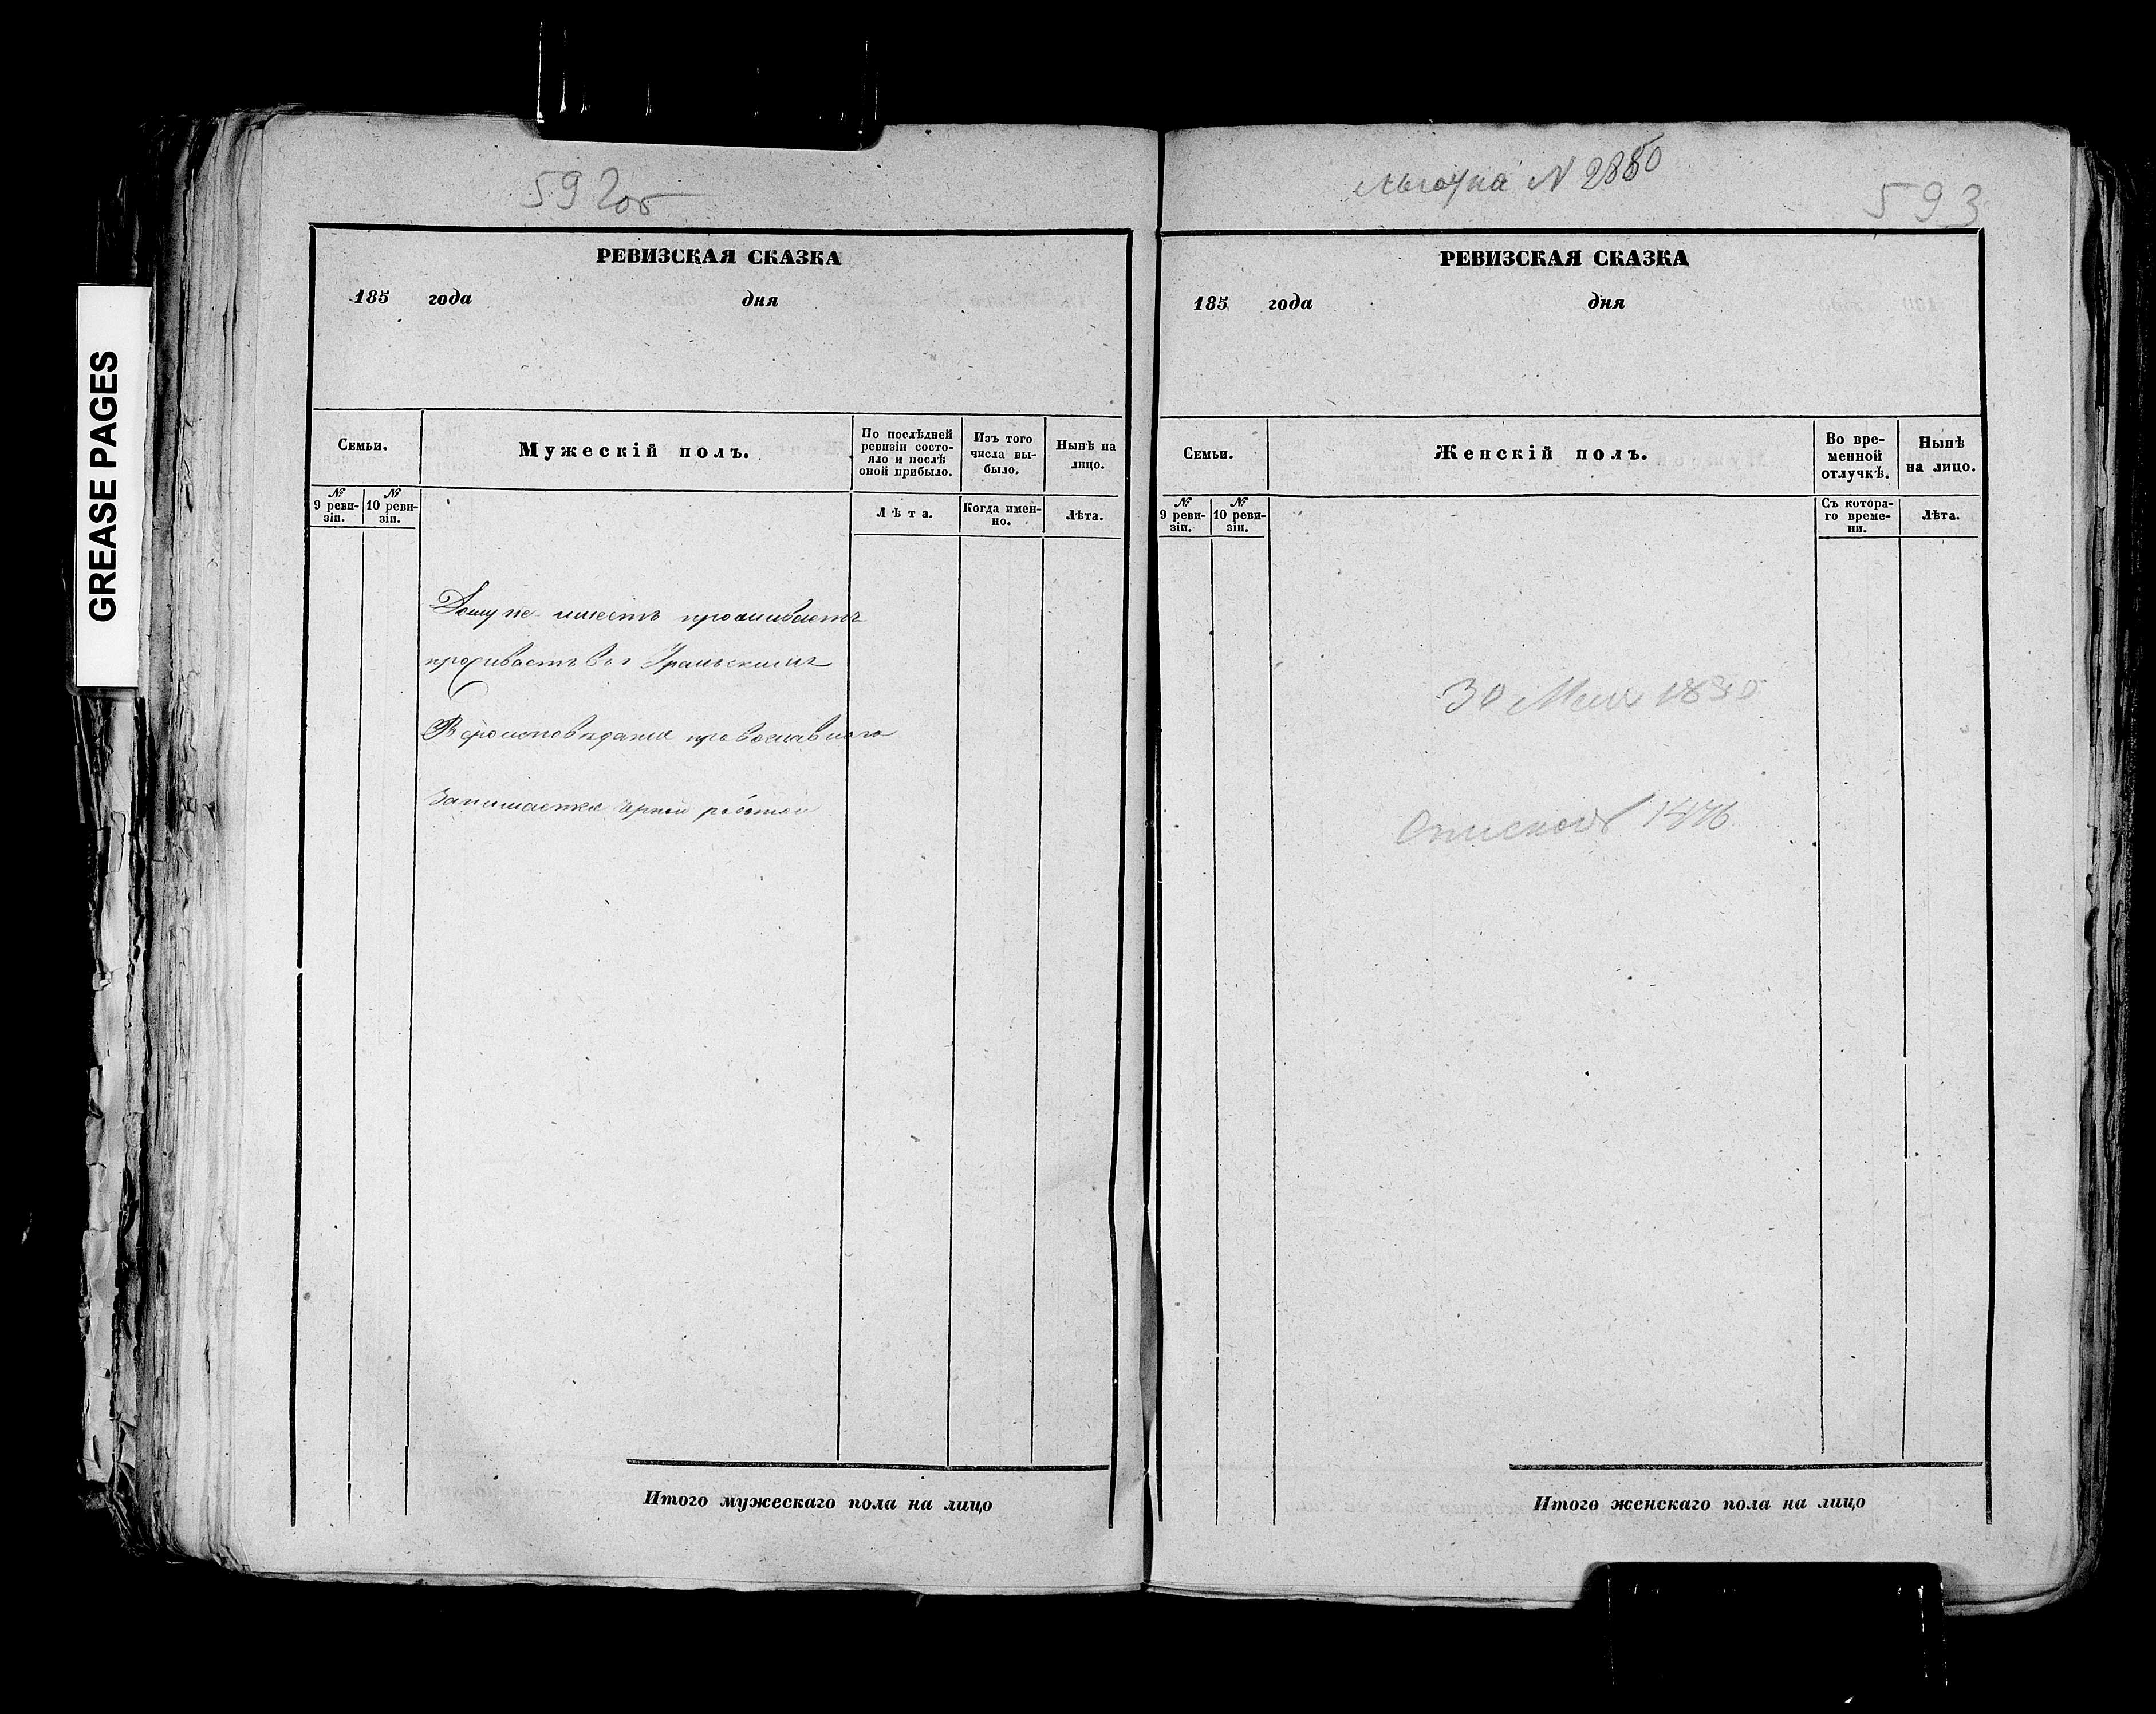 GREASE PAGES
592об
РЕВИЗСКАЯ СКАЗКА
185 года дня
Семьи.
Мужескій полъ.
По послѣдней ревизіи состо-
яло и послѣ оной прибыло.
Изъ того числа вы-
было.
Нынѣ на лицо.
№ 9 реви-
зіи.
№ 10 реви-
зіи.
Лѣта.
Когда имен-
но.
Лѣта.
Дому не имеетъ проживаетъ
проживаетъ въ г Уральскимъ
Вероисповедания православного
Занимается черной работой
Итого мужескаго пола на лицо
N 2880
593
РЕВИЗСКАЯ СКАЗКА
185 года дня
Семьи.
Женскій полъ.
Во вре-
менной
отлучкѣ.
Нынѣ
на лицо.
№ 9 реви-
зіи.
№ 10 реви-
зіи.
Съ котора-
го време-
ни.
Лѣта.
30 Мая
Итого женскаго пола на лицо